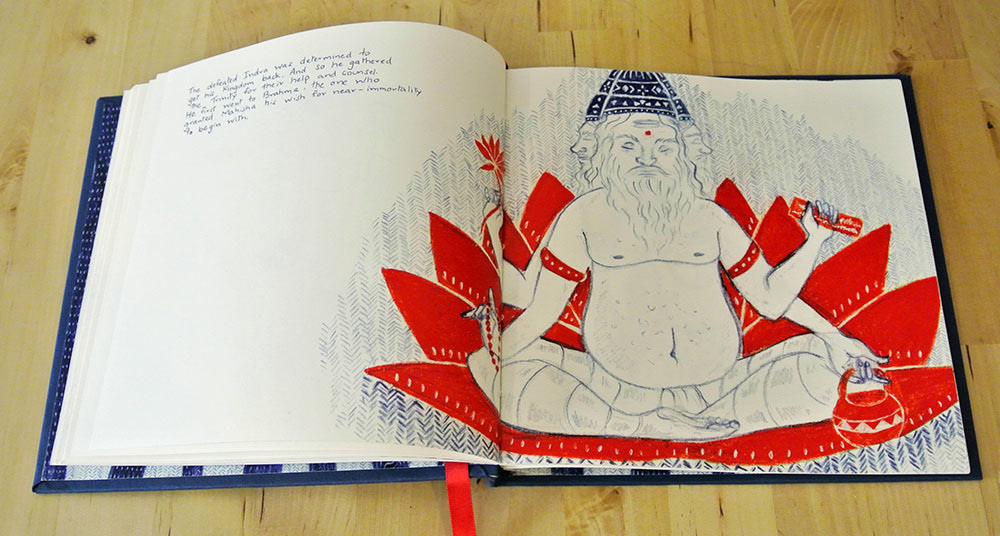 The defeated Indra was determined to
get his kingdom back. And so he gathered
the Trinity for their help and counsel.
He first went to Brahma - the one who
granted Mahisha his wish for near-immortality
to begin with.